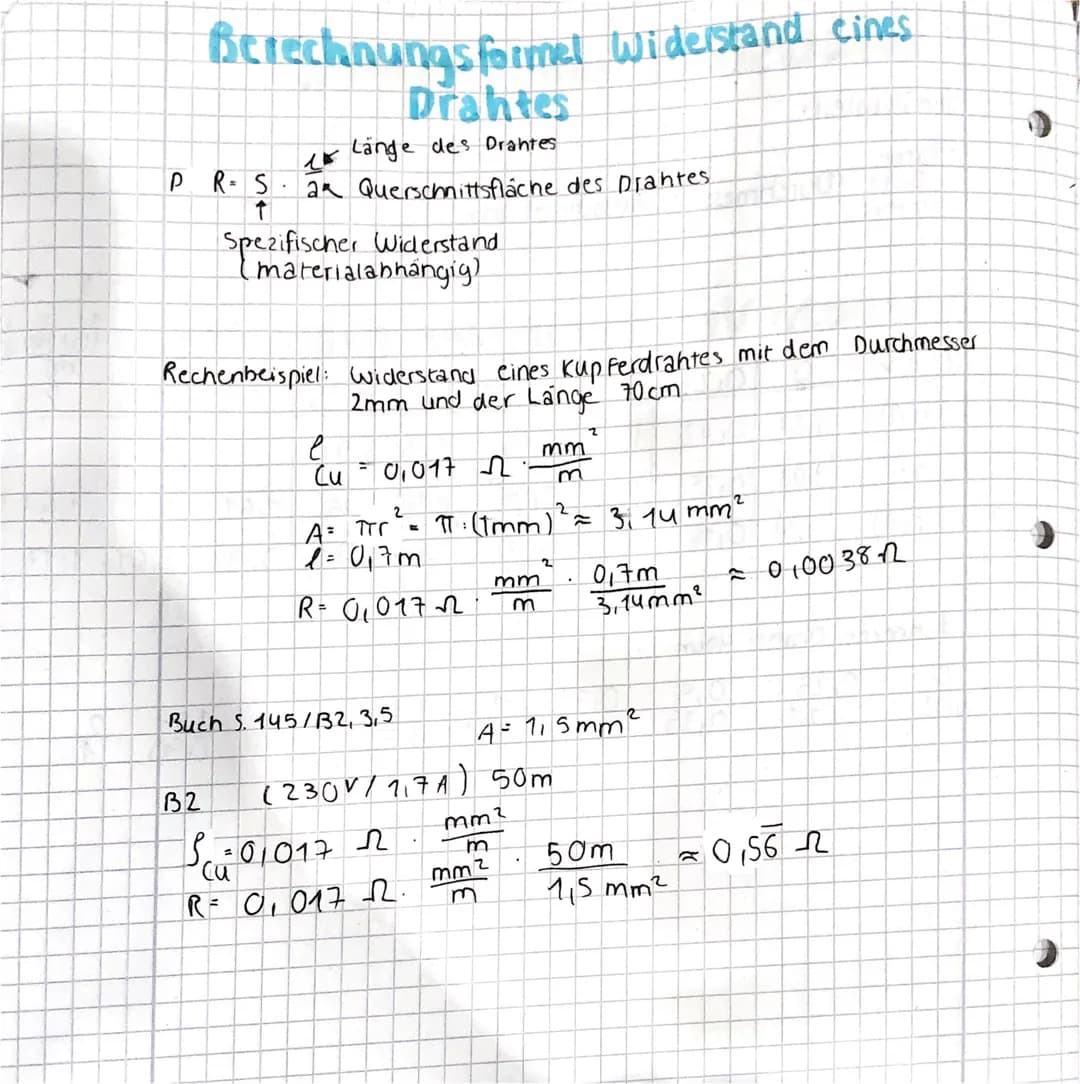 Berechnungsformel Widerstand eines
Drahtes
l Länge des Drahtes
P R= S · a Querschnittsfläche des Drahtes
↑
Spezifischer Widerstand
(materialabhängig)
Rechenbeispiel: Widerstand eines Kupferdrahtes mit dem Durchmesser
2mm und der Länge 70cm
ρ Cu = 0,017 Ω · mm²/m
A= πr² = π·(1mm)² ≈ 3,14 mm²
l = 0,7m
R= 0,017 Ω · mm²/m · 0,7m/3,14mm² ≈ 0,0038 Ω
Buch S. 145/B2, 3,5 A= 1,5mm²
B2 (230V/1,7A) 50m
ρ Cu = 0,017 Ω · mm²/m
R= 0,017 Ω · mm²/m · 50m/1,5 mm² ≈ 0,56̅ Ω